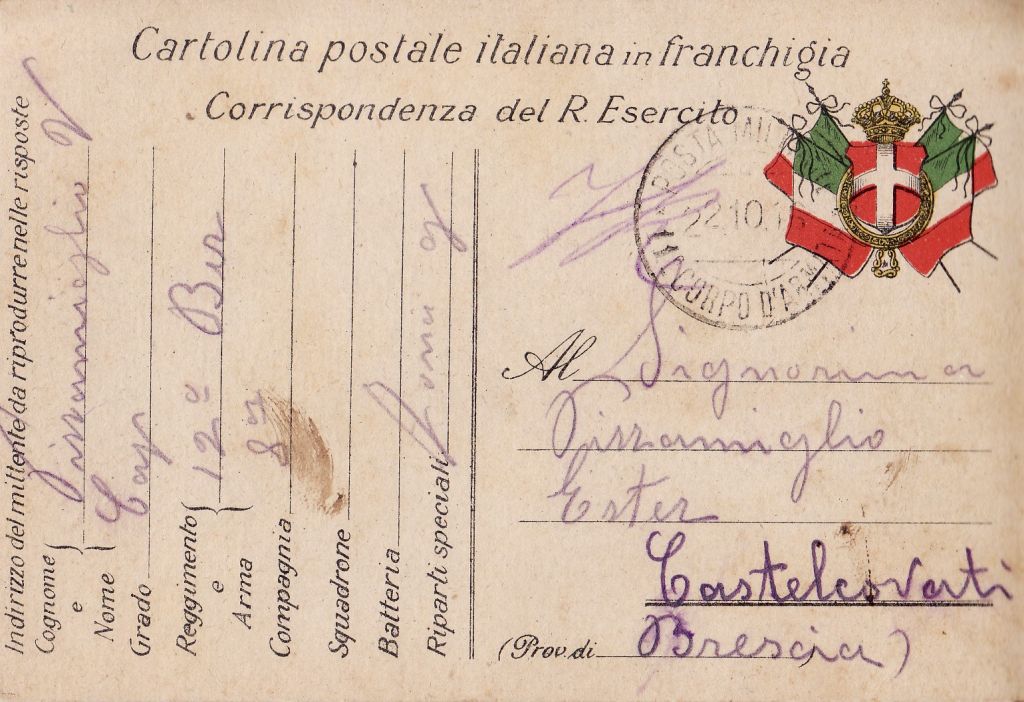 Cartolina postale italiana in franchigia
Corrispondenza del R. Esercito
POSTA MILI
22.10.1
CORPO D'ARM
Indirizzo del mittente da riprodurre nelle risposte
Cognome e Nome
Pizzamiglio
Grado
Cap
Reggimento e Arma
12º Ber
Compagnia
8ª
Squadrone
Batteria
Riparti speciali
Zona
Al Signorina
Pizzamiglio
Ester
Castelcovati
(Prov. di Brescia)